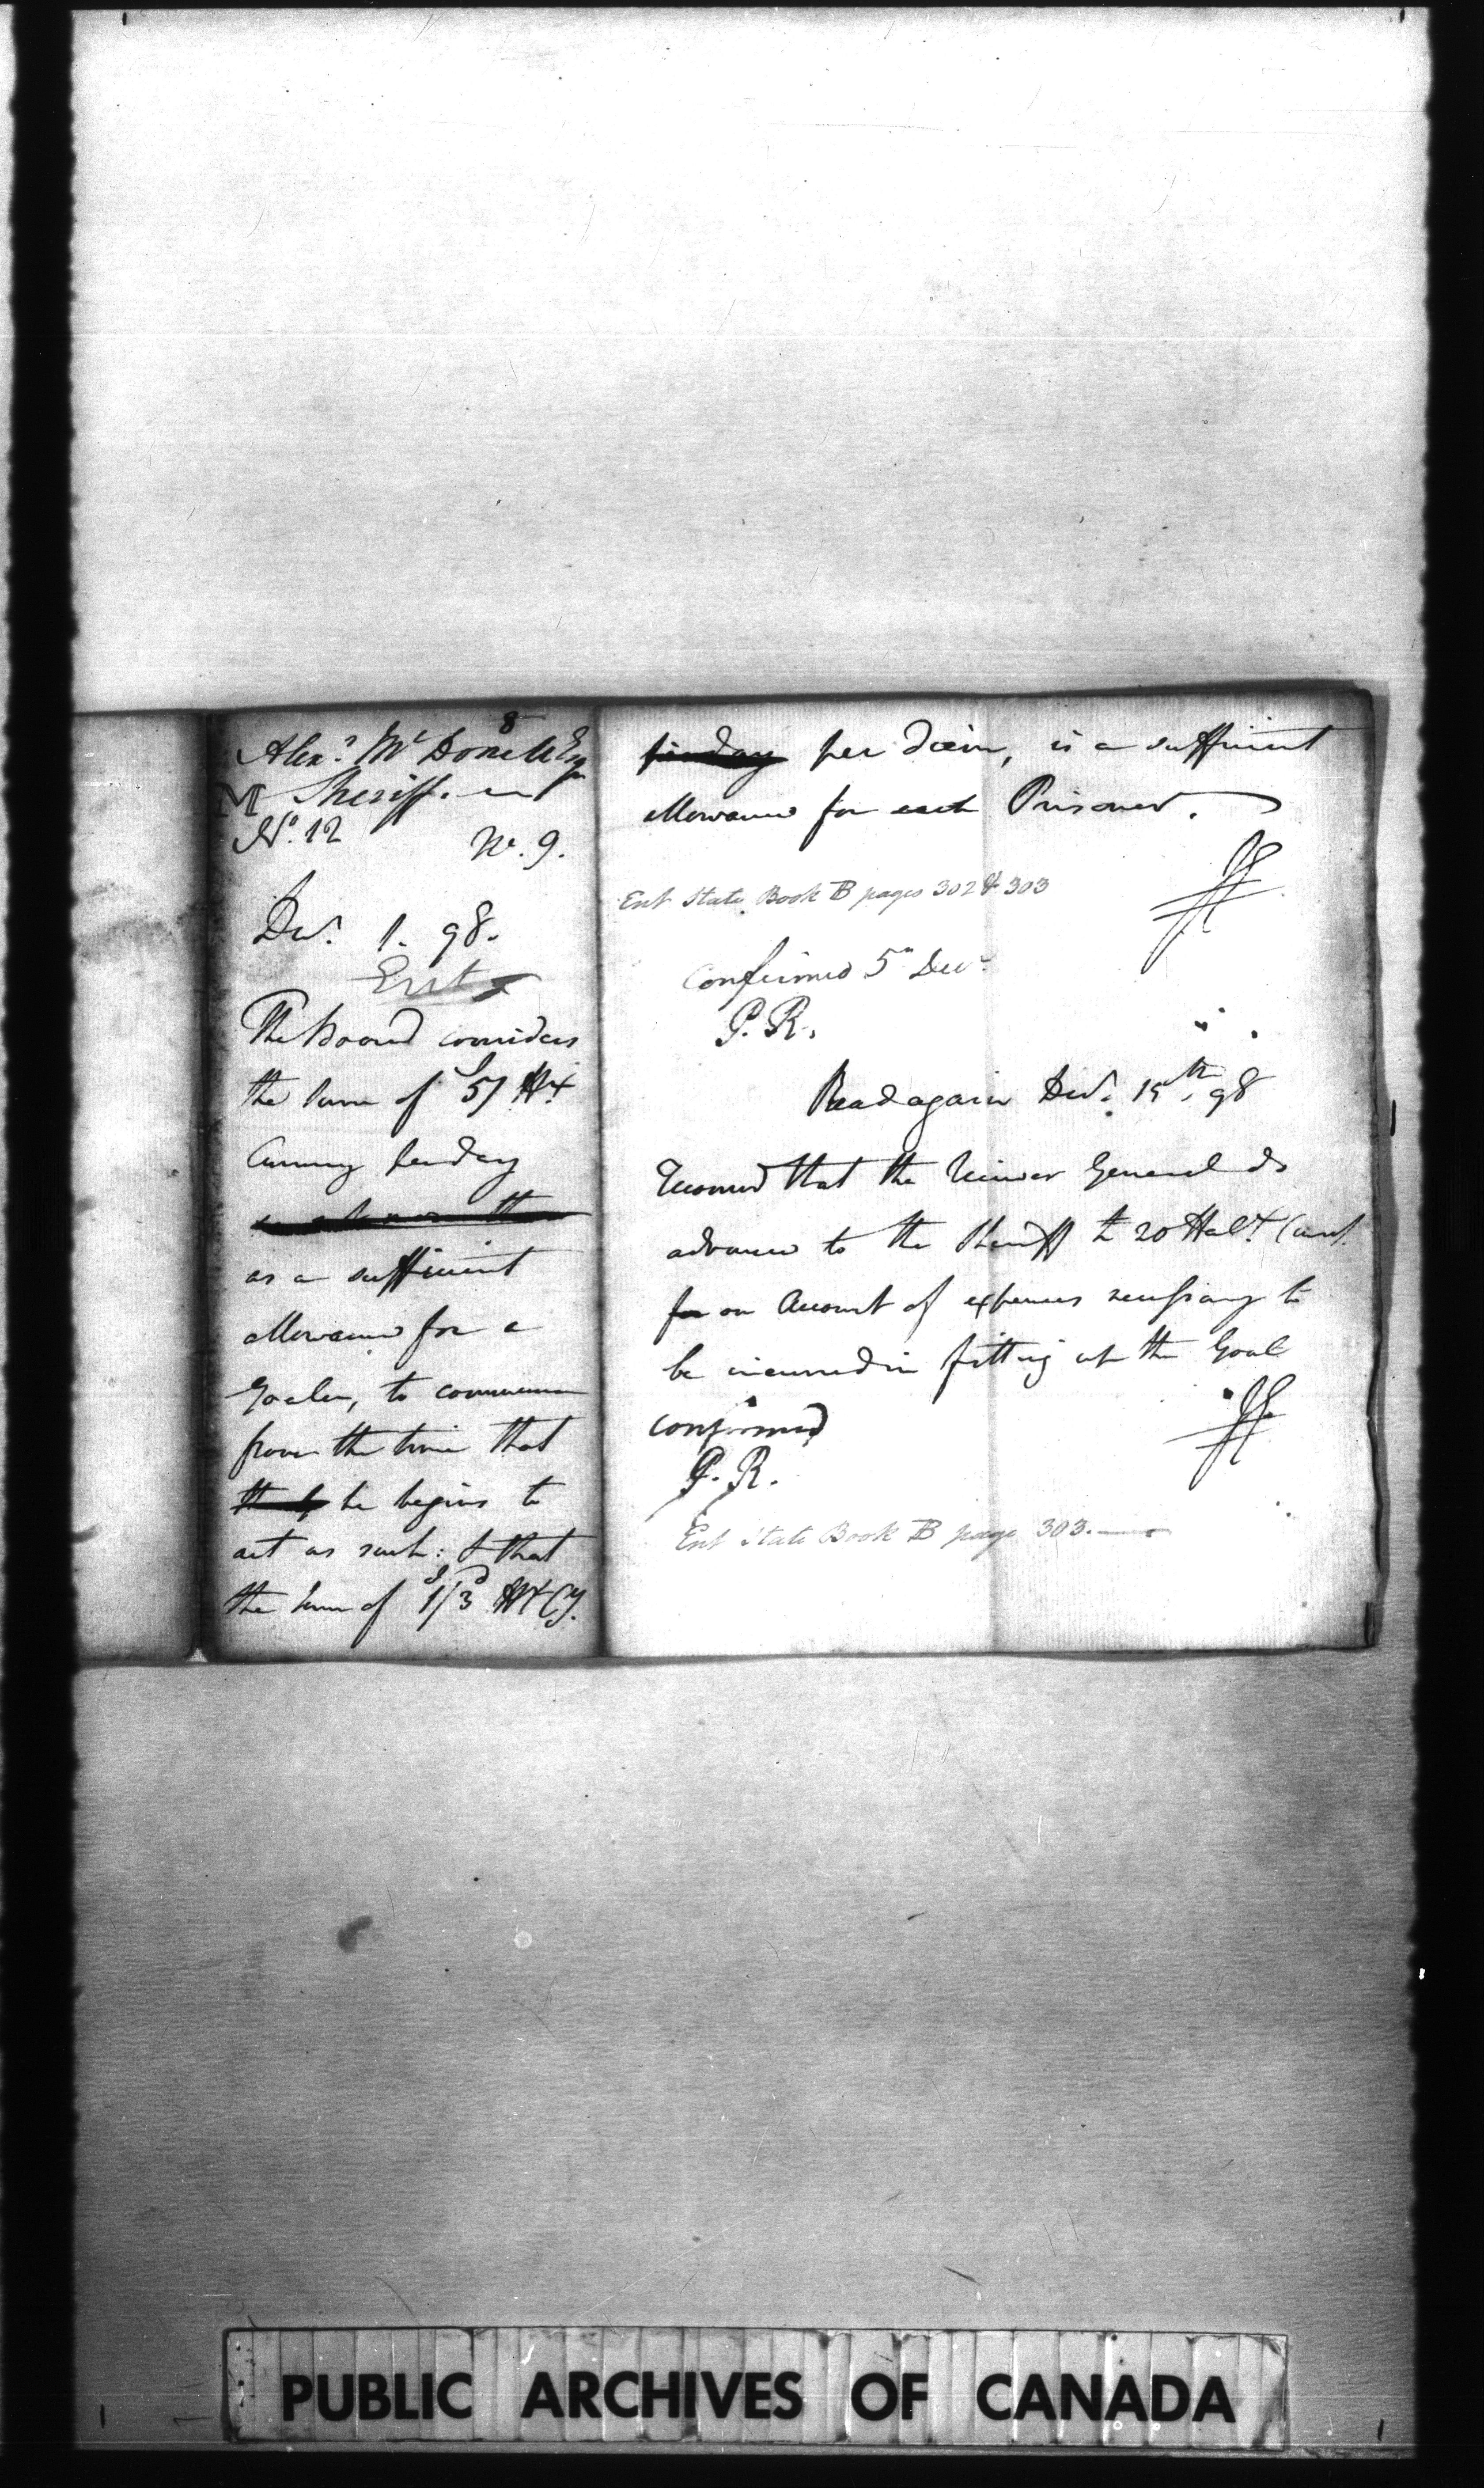 8
Alexr. McDonell Esqr
M Sheriff.
No. 12
No. 9.
Decr. 1. 98.
Ent
The Board considers
the sum of 5/ Hx
Curency per day
as a sufficient
allowance for a
Goaler, to commence
from the time that
he begins to
act as such: & that
the sum of 1s/3d Hx Cy.
per day per diem, is a sufficient
allowance for each Prisoner.
Ent State Book B pages 302 & 303
Confirmed 5th Decr.
P. R.
Read again Decr. 15th, 98
Recomd that the Receiver General do
advance to the Sheriff £ 20 Halx Curr.
for on Account of expences necessary to
be incurred in fitting up the Goal
confirmed
P. R.
Ent State Book B page 303.
PUBLIC ARCHIVES OF CANADA